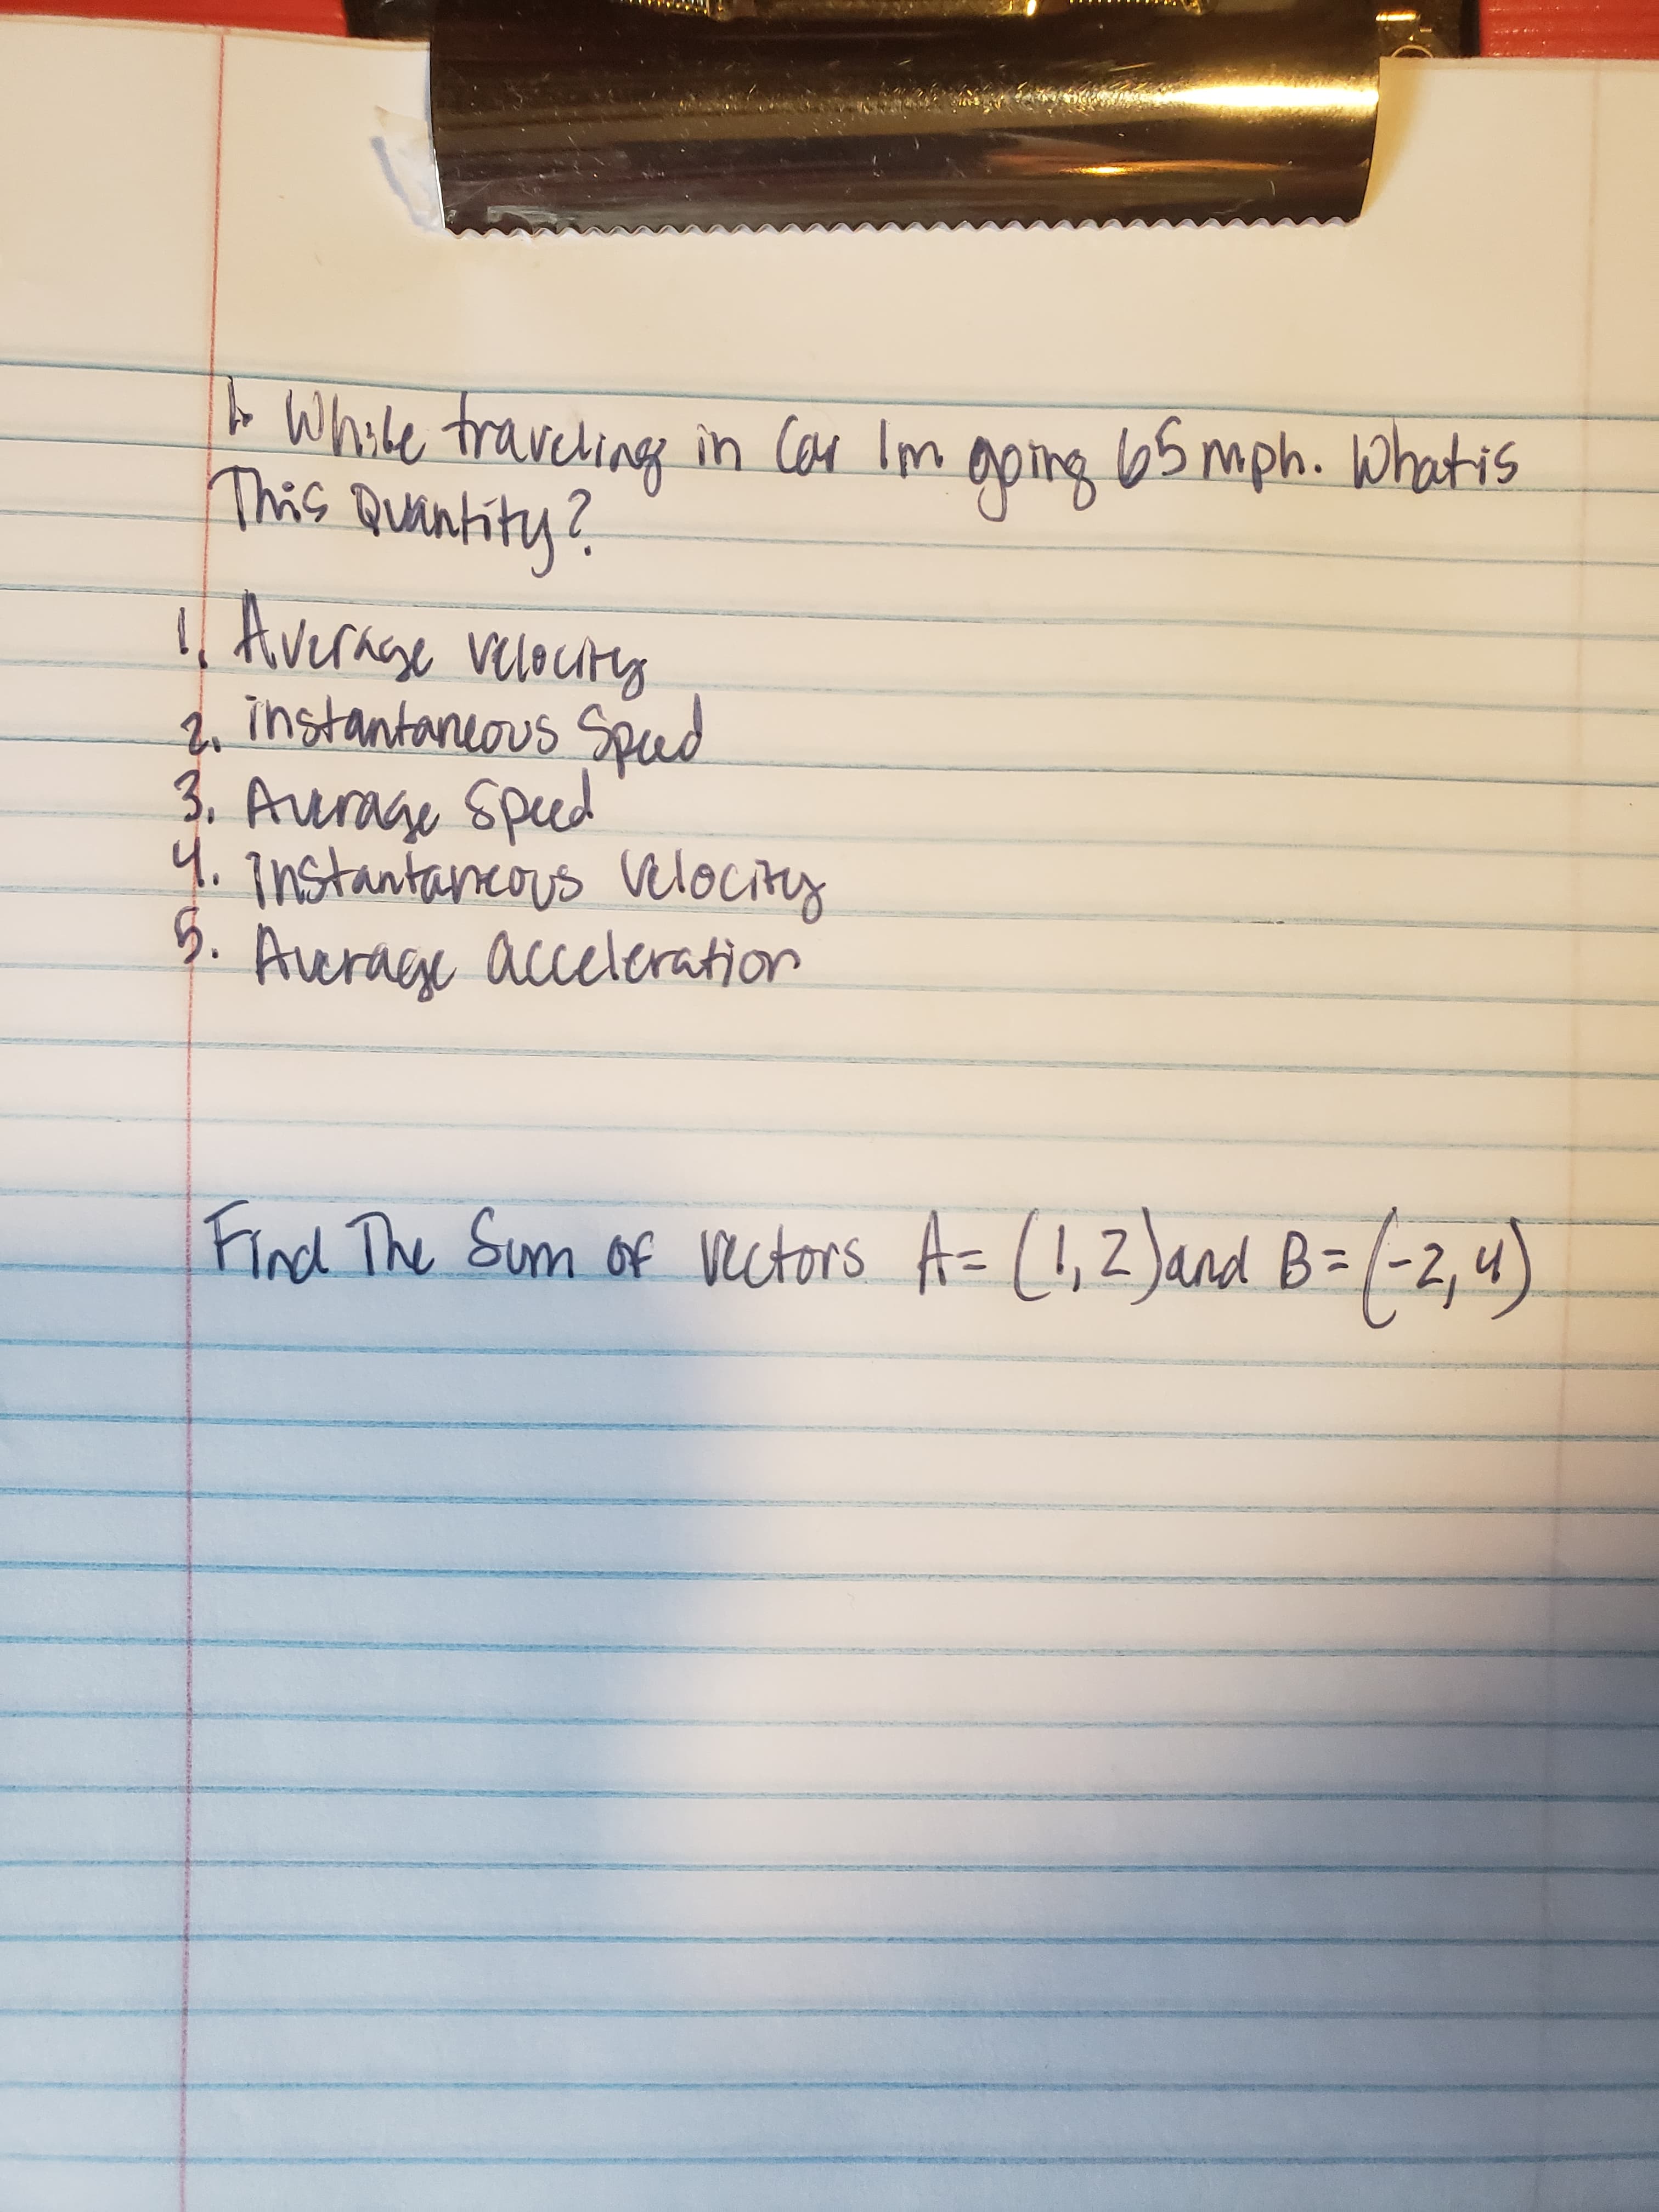 1. While traveling in Car Im going 65 mph. What is
This Quantity?
1. Average velocity
2. instantaneous Speed
3. Average Speed
4. Instantaneous Velocity
5. Average acceleration
Find The Sum of vectors A= (1,2) and B= (-2, 4)